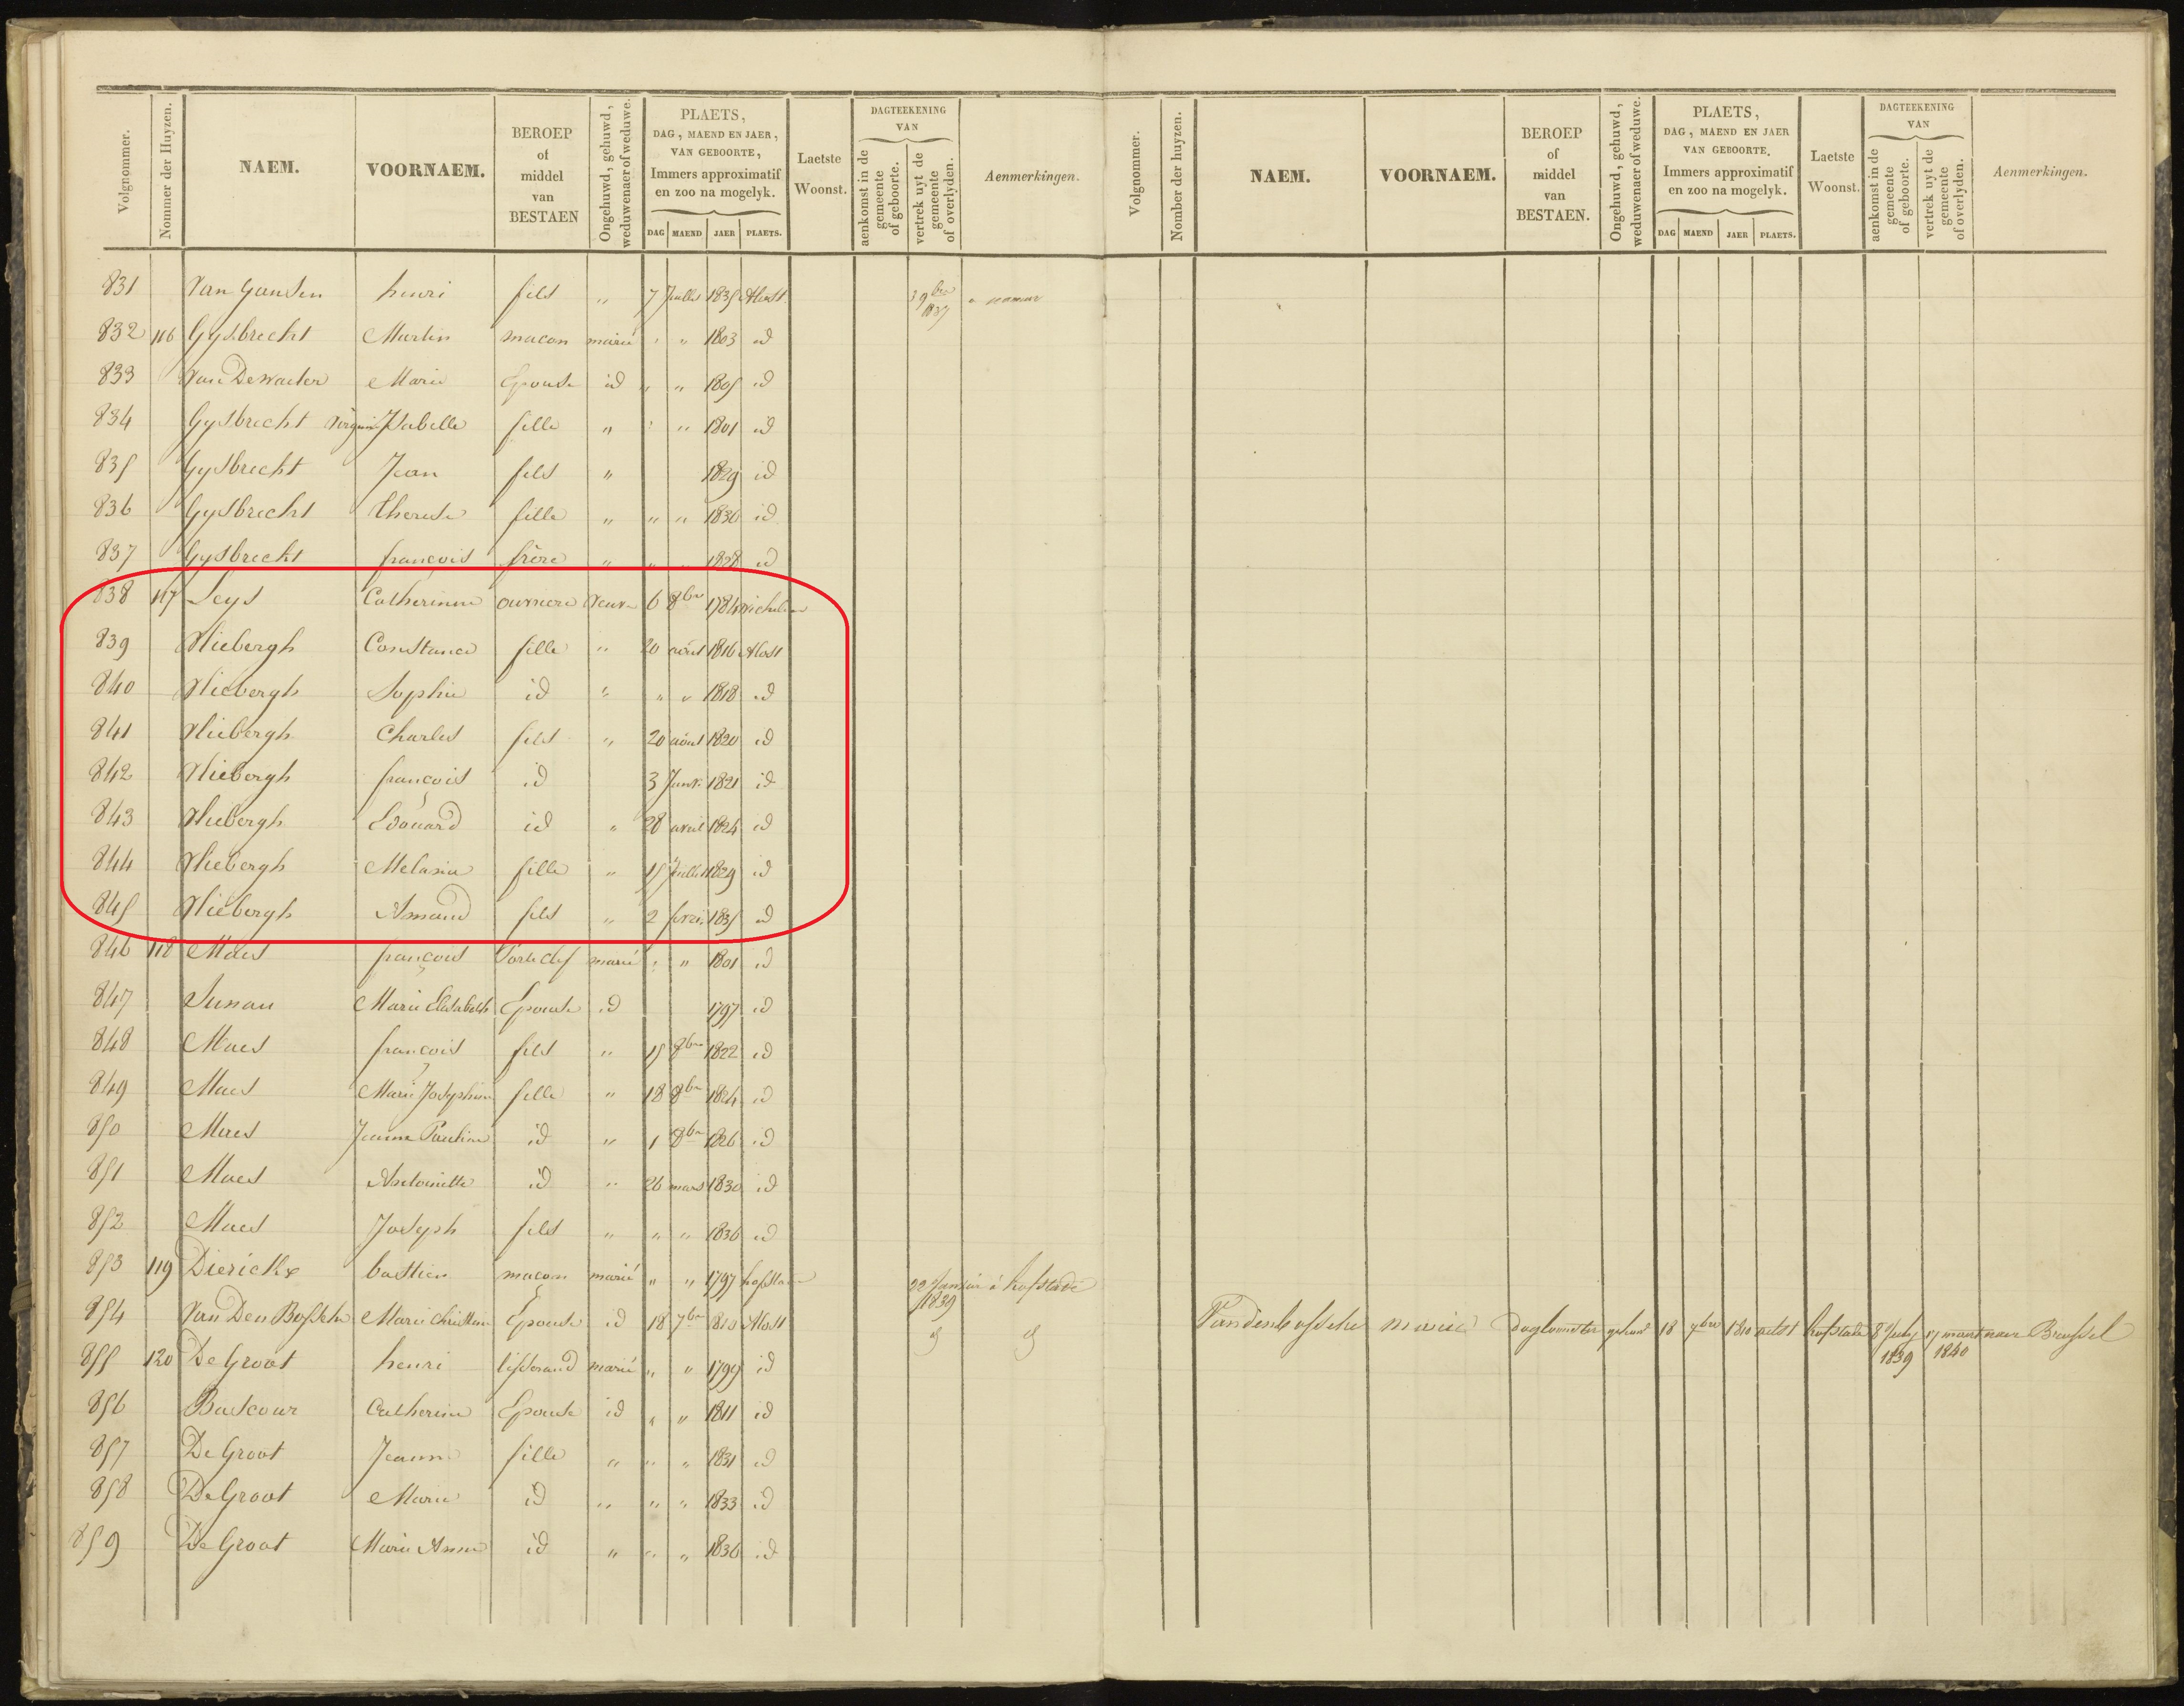 Volgnommer. Nommer der Huyzen. NAEM. VOORNAEM. BEROEP of middel van BESTAEN Ongehuwd, gehuwd, weduwenaer of weduwe. PLAETS, DAG, MAEND EN JAER, VAN GEBOORTE, Immers approximatif en zoo na mogelyk. DAG MAEND JAER PLAETS. Laetste Woonst. DAGTEEKENING VAN aenkomst in de gemeente of geboorte. vertrek uyt de gemeente of overlyden. Aenmerkingen.
Volgnommer. Nomber der huyzen. NAEM. VOORNAEM. BEROEP of middel van BESTAEN. Ongehuwd, gehuwd, weduwenaer of weduwe. PLAETS, DAG, MAEND EN JAER VAN GEBOORTE. Immers approximatif en zoo na mogelyk. DAG MAEND JAER PLAETS. Laetste Woonst. DAGTEEKENING VAN aenkomst in de gemeente of geboorte. vertrek uyt de gemeente of overlyden. Aenmerkingen.
831 Van Gansen henri fils " 7 Juillet 1835 Alost 9bre 1837 a namur
832 116 Gysbrecht Martin macon marié " " 1803 id
833 Van De Waeter Marie Epouse id " " 1805 id
834 Gysbrecht Virginie Isabelle fille " " " 1801 id
835 Gysbrecht Jean fils " 1829 id
836 Gysbrecht Therese fille " " " 1836 id
837 Gysbrecht françois frère " " " 1828 id
838 117 Leys Catherinne ouvriere Veuve 6 8bre 1784
839 Vliebergh Constance fille " 20 aout 1816 Alost
840 Vliebergh Sophie id " " " 1818 id
841 Vliebergh Charles fils " 20 aout 1820 id
842 Vliebergh françois id 3 Janv. 1821 id
843 Vliebergh Edouard id " 28 avril 1824 id
844 Vliebergh Melanie fille " 15 Juillet 1829 id
845 Vliebergh Amand fils " 2 1835 id
846 118 Maes françois Porteclef marié " " 1801 id
847 Marie Elisabeth Epouse id 1797 id
848 Maes françois fils " 15 8bre 1822 id
849 Maes Marie Josephine fille " 18 8bre 1824 id
850 Maes Jeanne Pauline id " 1 8bre 1826 id
851 Maes Antoinette id " 26 mars 1830 id
852 Maes Joseph fils " " " 1836 id
853 119 Dierickx bastien macon marié " " 1797 hofstade 22 Janvier 1839 à hofstade
854 Van Den Bossche Marie Christine Epouse id 18 7bre 1810 Alost id id Vandenbossche marie gehuwd 18 7bre 1810 aelst hofstade 8 July 1839 17 maert 1840 naer Brussel
855 120 De Groot henri tisserand marié " " 1799 id
856 Bascour Catherine Epouse id " " 1811 id
857 De Groot Jeanne fille " " " 1831 id
858 De Groot Marie id " " " 1833 id
859 De Groot Marie Anne id " " " 1836 id